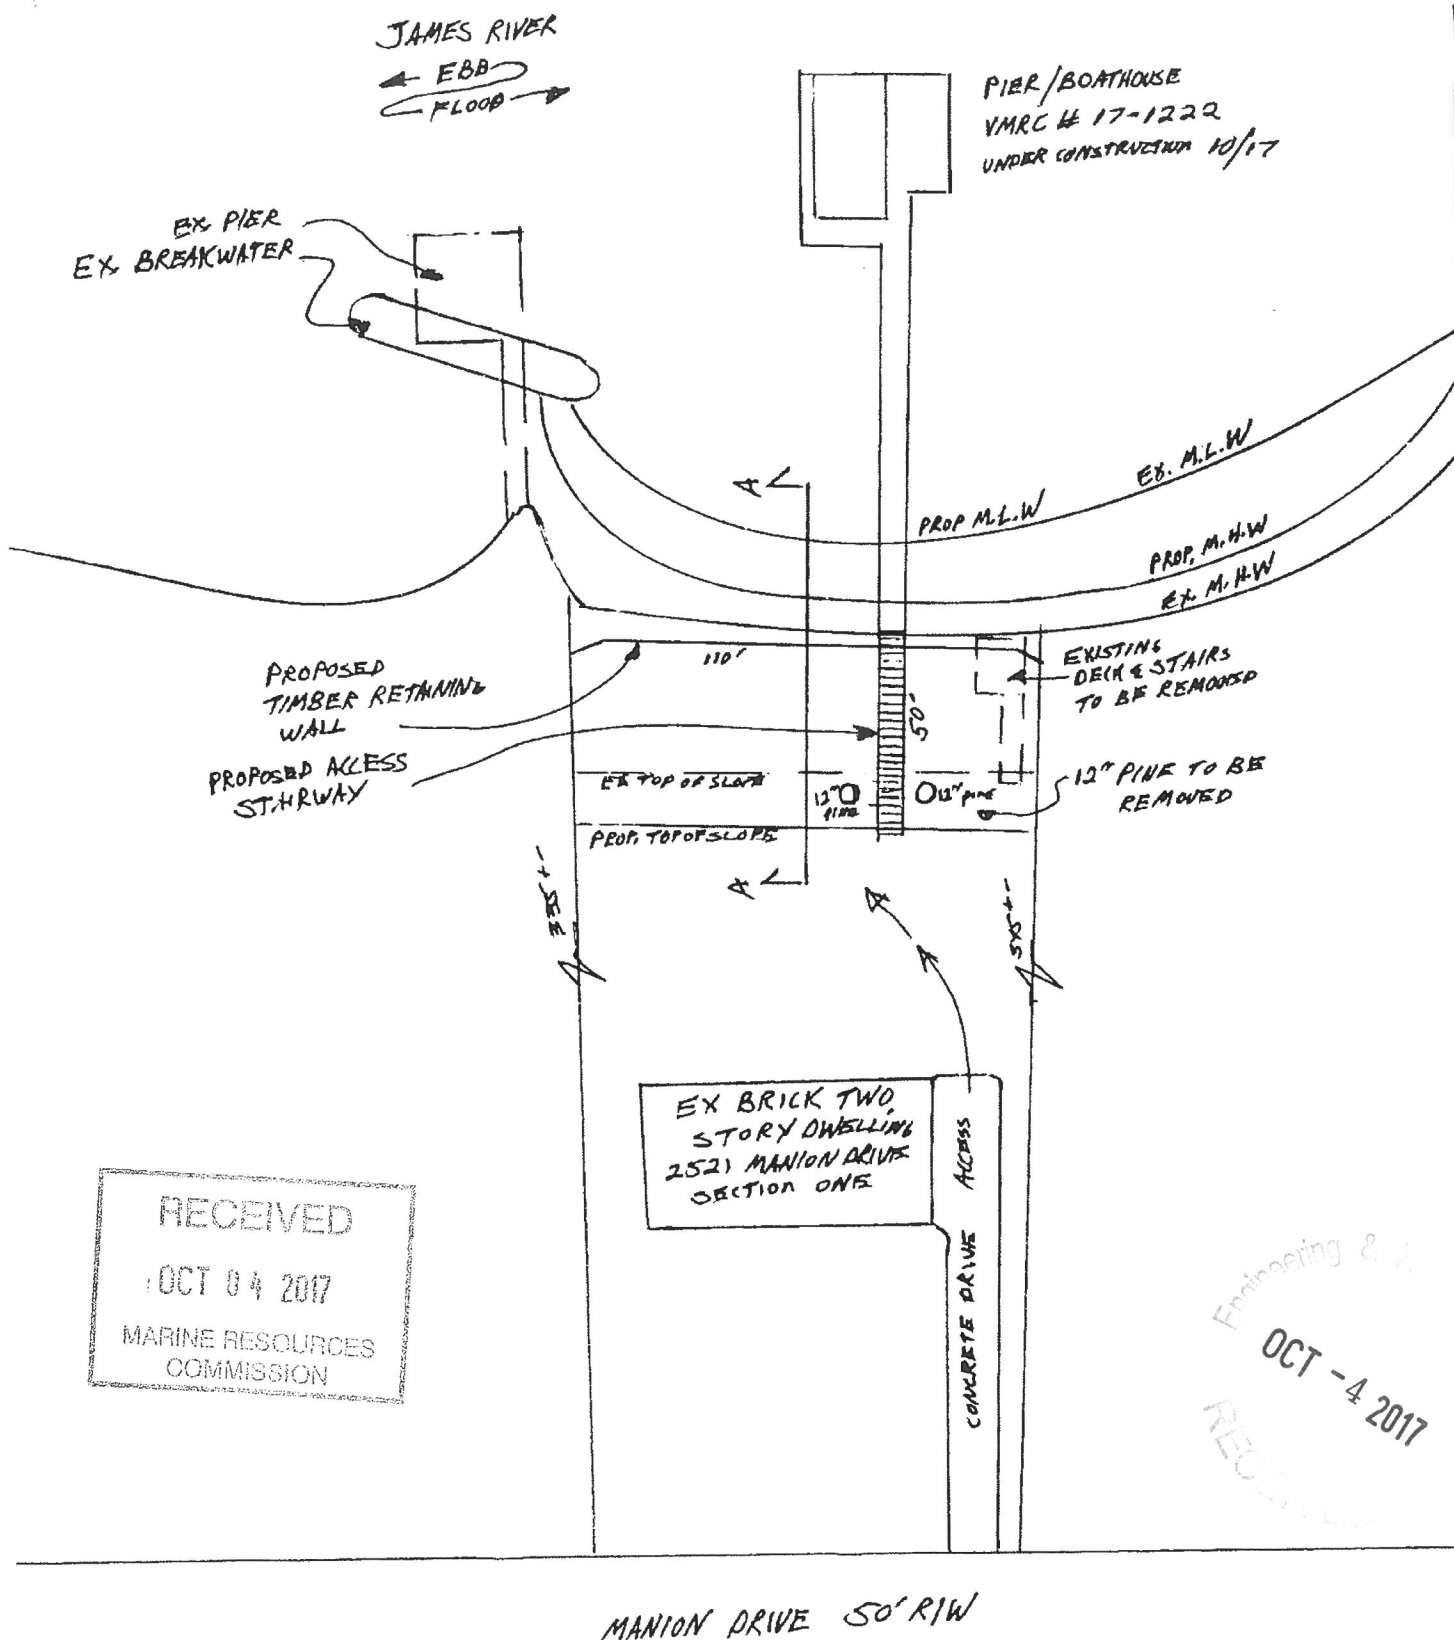 JAMES RIVER
EBB
FLOOD
PIER/BOATHOUSE
VMRC # 17-1222
UNDER CONSTRUCTION 10/17
EX PIER
EX BREAKWATER
A
EX. M.L.W
PROP M.L.W
PROP. M.H.W
EX. M.H.W
110'
PROPOSED
TIMBER RETAINING
WALL
EXISTING
DECK & STAIRS
TO BE REMOVED
50'
PROPOSED ACCESS
STAIRWAY
EX TOP OF SLOPE
12"
PINE
12" PINE
12" PINE TO BE
REMOVED
PROP. TOP OF SLOPE
A
EX BRICK TWO
STORY DWELLING
2521 MANION DRIVE
SECTION ONE
CONCRETE DRIVE ACCESS
RECEIVED
OCT 04 2017
MARINE RESOURCES
COMMISSION
Engineering &
OCT -4 2017
MANION DRIVE 50' R/W